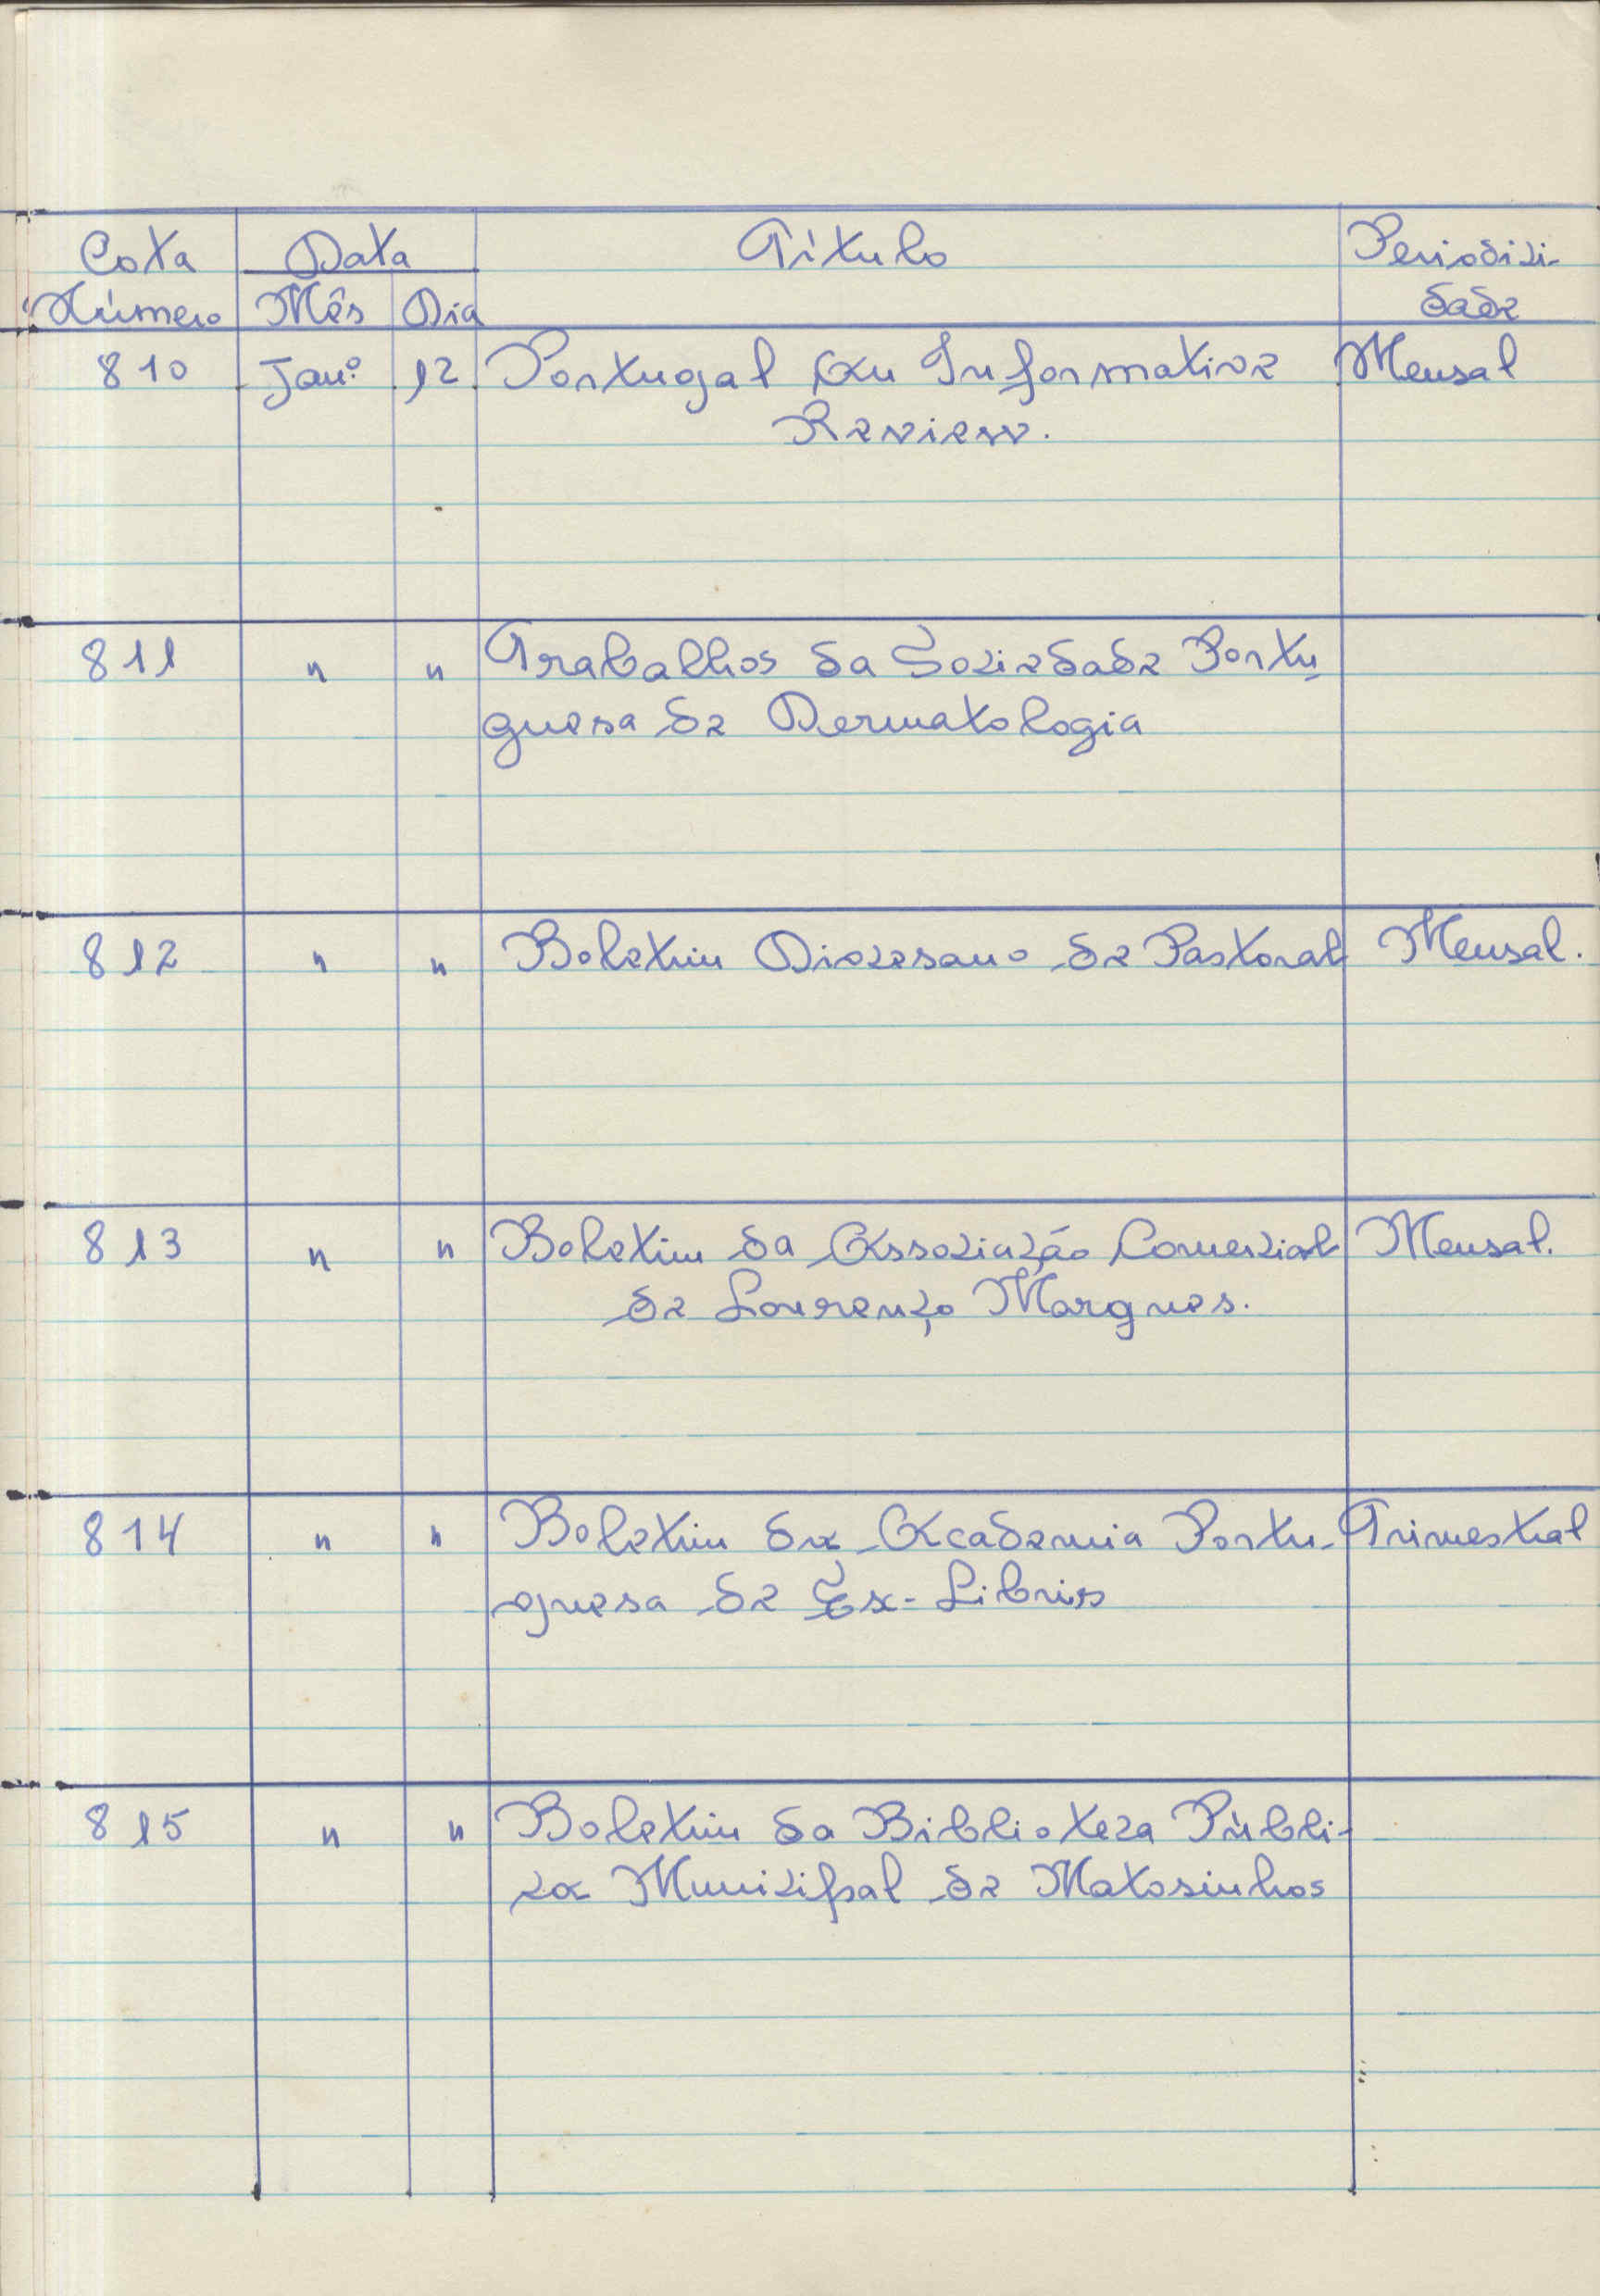 Cota Data Título Periodici-
Número Mês Dia dade
810 Jan.º 12 Portugal An Informative Mensal
Review.
811 " " Trabalhos da Sociedade Portu-
guesa de Dermatologia
812 " " Boletim Diocesano de Pastoral Mensal.
813 " " Boletim da Associação Comercial Mensal.
de Lourenço Marques.
814 " " Boletim da Academia Portu- Trimestral
guesa de Ex-Libris
815 " " Boletim da Biblioteca Públi-
ca Municipal de Matosinhos